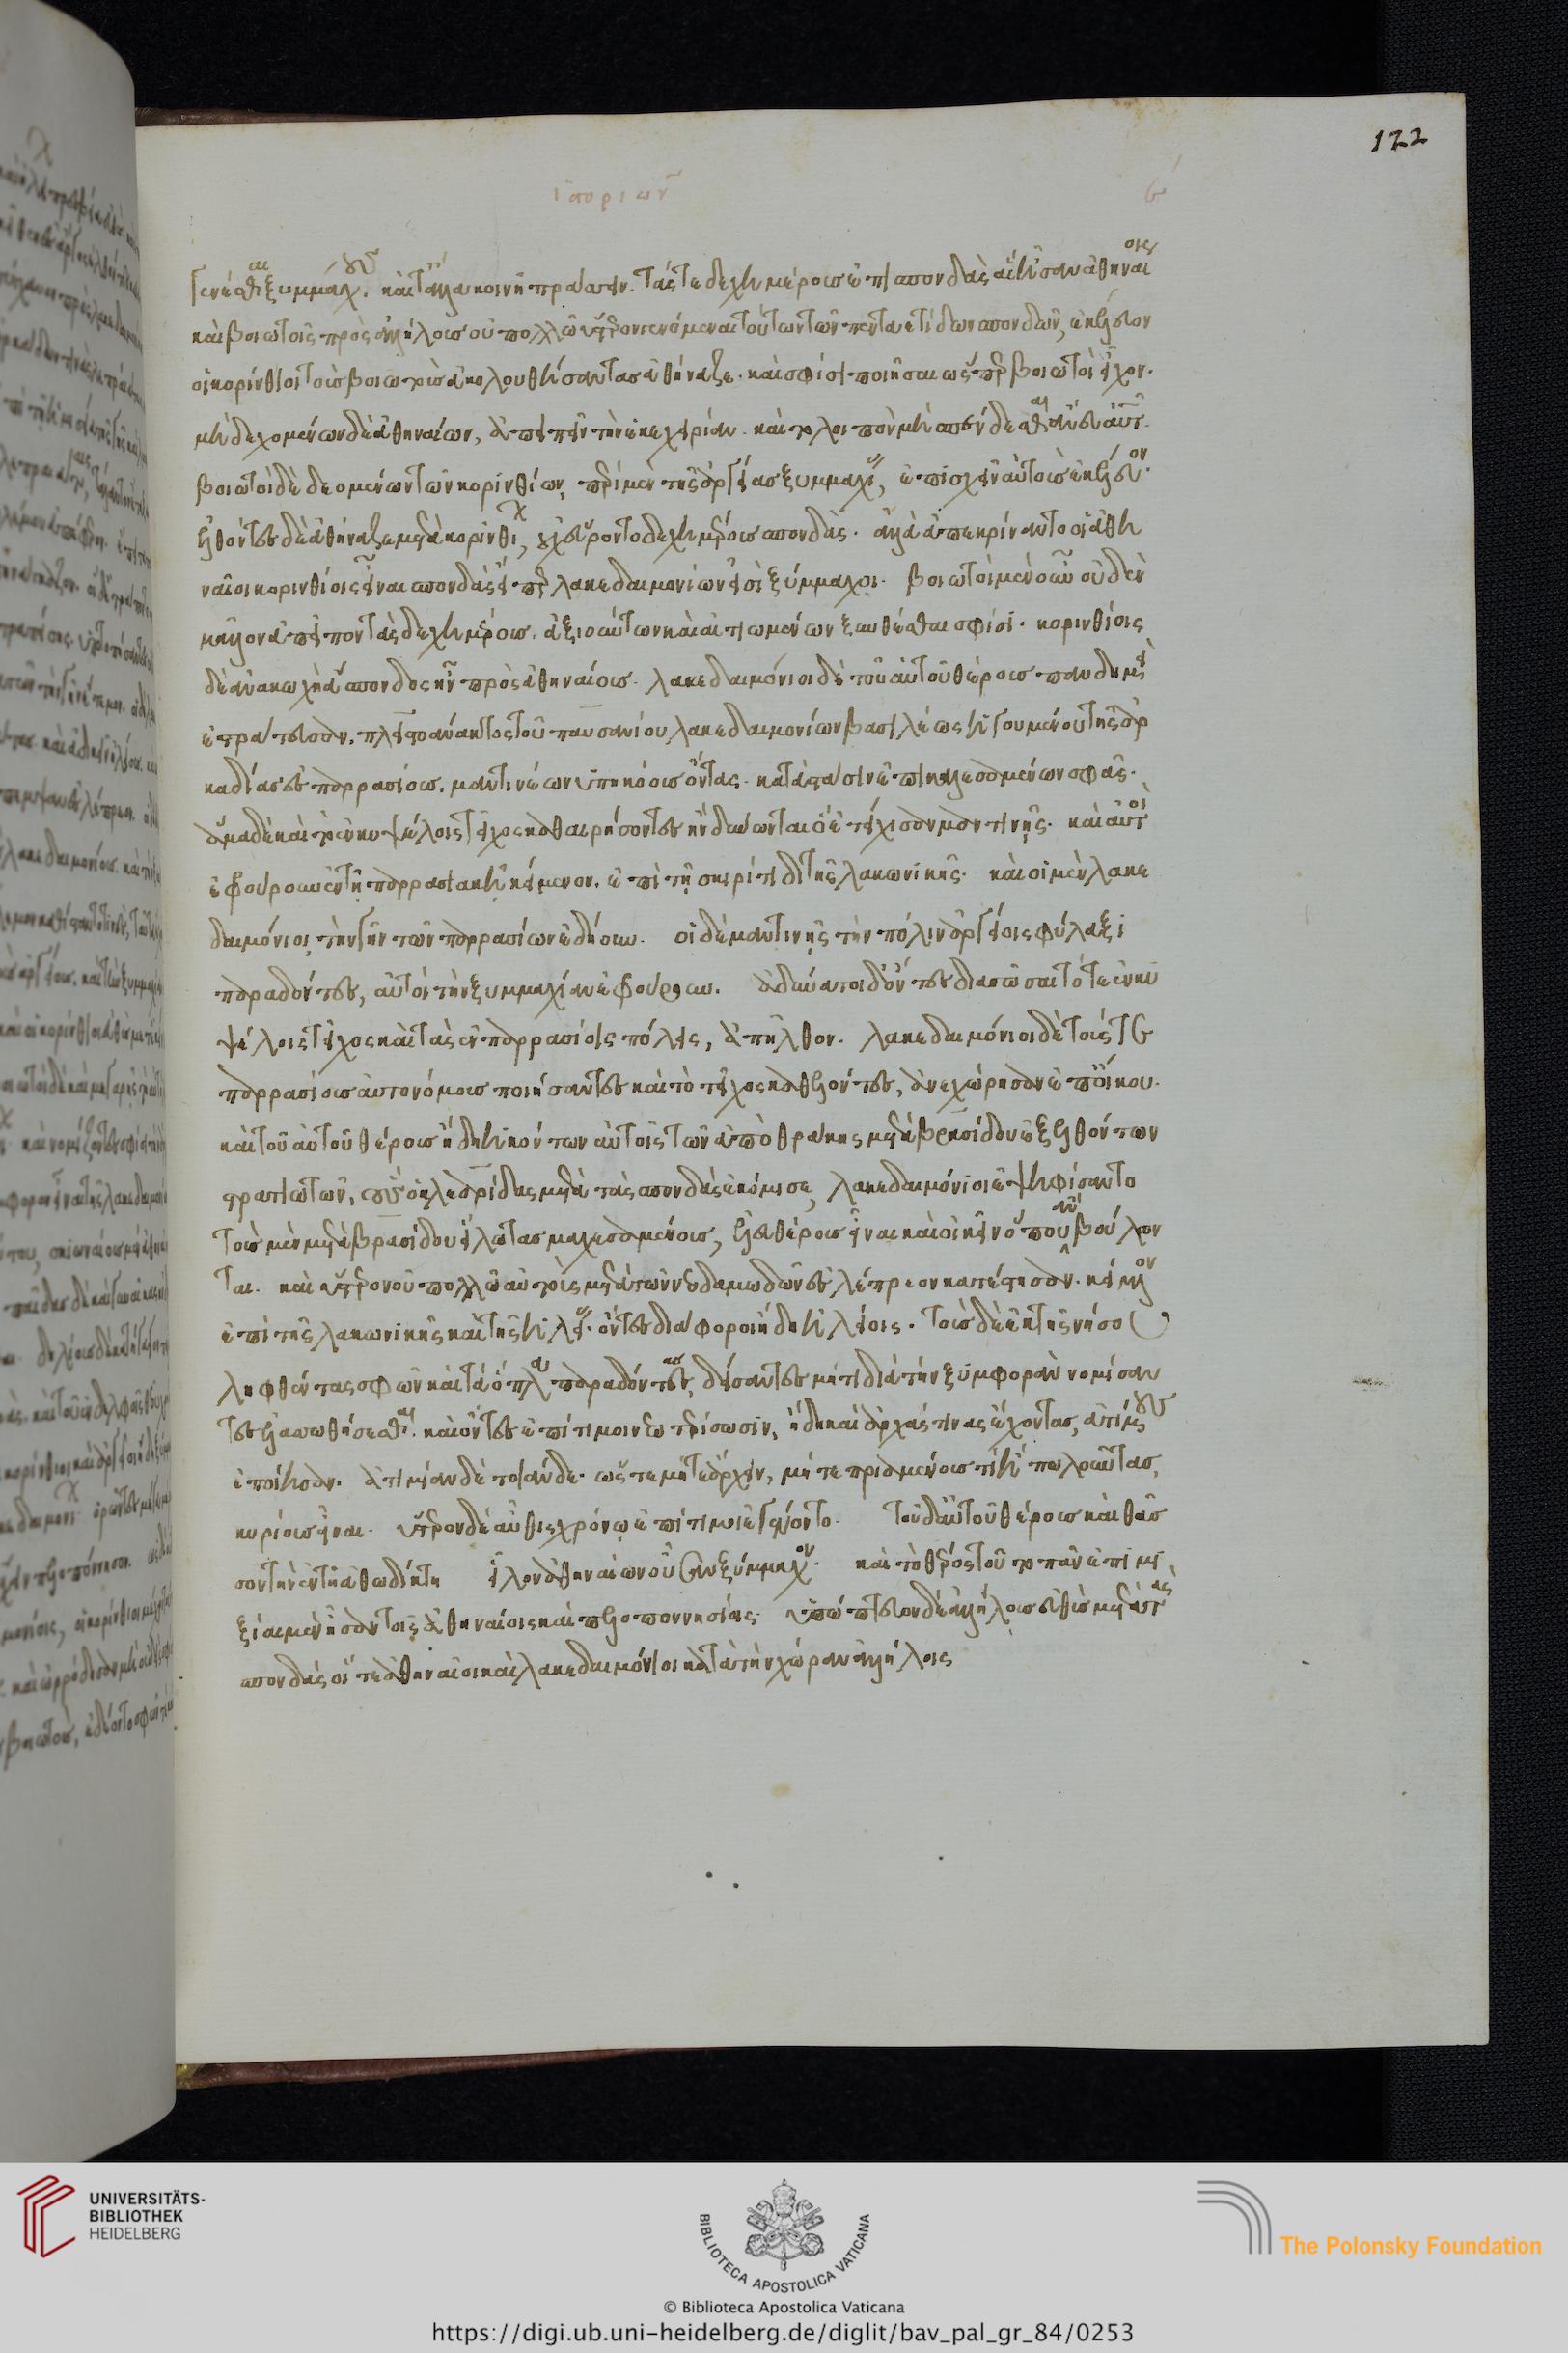 122
ἱστοριῶν
γενέσθαι ξυμμάχους. καὶ τἄλλα κοινῇ πράσσειν. τάς τε δεχημέρους ἐπισπονδὰς αἳ ἦσαν ἀθηναίοις
καὶ βοιωτοῖς πρὸς ἀλλήλους οὐ πολλῷ ὕστερον γενόμεναι τούτων τῶν πεντηκετίδων σπονδῶν, ἐκέλευον
οἱ κορίνθιοι τοὺς βοιωτοὺς ἀκολουθήσαντας ἀθήναζε. καὶ σφίσι ποιῆσαι ὥσπερ βοιωτοὶ εἶχον.
μὴ δεχομένων δὲ ἀθηναίων, ἀπειπεῖν τὴν ἐκεχειρίαν. καὶ τὸ λοιπὸν μὴ σπένδεσθαι ἄνευ αὐτῶν.
βοιωτοὶ δὲ δεομένων τῶν κορινθίων, περὶ μὲν τῆς ἀργείας ξυμμαχίας, ἐπισχεῖν αὐτοὺς ἐκέλευον.
ἐλθόντες δὲ ἀθήναζε μετὰ κορινθίων, οὐχ εὕροντο δεχημέρους σπονδάς. ἀλλὰ ἀπεκρίναντο οἱ ἀθη
ναῖοι κορινθίοις εἶναι σπονδάς εἴπερ λακεδαιμονίων εἰσὶ ξύμμαχοι. βοιωτοὶ μὲν οὖν οὐδὲν
μᾶλλον ἀπεῖπον τὰς δεχημέρους. ἀξιούντων καὶ αἰτιωμένων ξυνθέσθαι σφίσι. κορινθίοις
δὲ ἀνακωχὴ ἄσπονδος ἦν πρὸς ἀθηναίους. λακεδαιμόνιοι δὲ τοῦ αὐτοῦ θέρους πανδημεὶ
ἐστράτευσαν. πλειστοάνακτος τοῦ παυσανίου λακεδαιμονίων βασιλέως ἡγουμένου τῆς ἀρ
καδίας ἐς παρρασίους. μαντινέων ὑπηκόους ὄντας. κατὰ στάσιν ἐπικαλεσαμένων σφᾶς.
ἅμα δὲ καὶ τὸ ἐν κυψέλοις τεῖχος καθαιρήσοντες ἢν δύνωνται ὃ ἐτείχισαν μαντινῆς. καὶ αὐτοὶ
ἐφρούρουν ἐν τῇ παρρασικῇ κείμενον. ἐπὶ τῇ σκιρίτιδι τῆς λακωνικῆς. καὶ οἱ μὲν λακε
δαιμόνιοι τὴν γῆν τῶν παρρασίων ἐδῄουν. οἱ δὲ μαντινῆς τὴν πόλιν ἀργείοις φύλαξι
παραδόντες, αὐτοὶ τὴν ξυμμαχίαν ἐφρούρουν. ἀδύνατοι δ' ὄντες διασῶσαι τό τε ἐν κυ
ψέλοις τεῖχος καὶ τὰς ἐν παρρασίοις πόλεις, ἀπῆλθον. λακεδαιμόνιοι δὲ τούς τε
παρρασίους αὐτονόμους ποιήσαντες καὶ τὸ τεῖχος καθελόντες, ἀνεχώρησαν ἐπ' οἴκου.
καὶ τοῦ αὐτοῦ θέρους ἤδη ἡκόντων αὐτοῖς τῶν ἀπὸ θρᾴκης μετὰ βρασίδου ἐξελθόντων
στρατιωτῶν, οὓς ὁ κλεαρίδας μετὰ τὰς σπονδὰς ἐκόμισε, λακεδαιμόνιοι ἐψηφίσαντο
τοὺς μὲν μετὰ βρασίδου εἵλωτας μαχεσαμένους, ἐλευθέρους εἶναι καὶ οἰκεῖν ὅπου ἂν βούλων
ται. καὶ ὕστερον οὐ πολλῷ αὐτοὺς μετὰ τῶν νεοδαμωδῶν ἐς λέπρεον κατέστησαν. κείμενον
ἐπὶ τῆς λακωνικῆς καὶ τῆς ἠλείας. ὄντες διάφοροι ἤδη ἠλείοις. τοὺς δὲ ἐκ τῆς νήσου
ληφθέντας σφῶν καὶ τὰ ὅπλα παραδόντας, δείσαντες μή τι διὰ τὴν ξυμφορὰν νομίσαν
τες ἐλασσωθήσεσθαι. καὶ ὄντες ἐπίτιμοι νεωτερίσωσιν, ἤδη καὶ ἀρχάς τινας ἔχοντας, ἀτίμους
ἐποίησαν. ἀτιμίαν δὲ τοιάνδε. ὥστε μήτε ἄρχειν, μήτε πριαμένους τι ἢ πωλοῦντας,
κυρίους εἶναι. ὕστερον δὲ αὖθις χρόνῳ ἐπίτιμοι ἐγένοντο. τοῦ δ' αὐτοῦ θέρους καὶ θυσ
σὸν τὴν ἐν τῇ ἄθω διηκτη εἷλον ἀθηναίων οὖσαν ξύμμαχον. καὶ τὸ θέρος τοῦτο πᾶν ἐπιμι
ξίαι μὲν ἦσαν τοῖς ἀθηναίοις καὶ πελοποννησίοις. ὑπώπτευον δὲ ἀλλήλους εὐθὺς μετὰ τὰς
σπονδάς οἵ τε ἀθηναῖοι καὶ λακεδαιμόνιοι κατὰ τὴν χώραν ἀλλήλοις
UNIVERSITÄTS-
BIBLIOTHEK
HEIDELBERG
BIBLIOTECA APOSTOLICA VATICANA
The Polonsky Foundation
© Biblioteca Apostolica Vaticana
https://digi.ub.uni-heidelberg.de/diglit/bav_pal_gr_84/0253